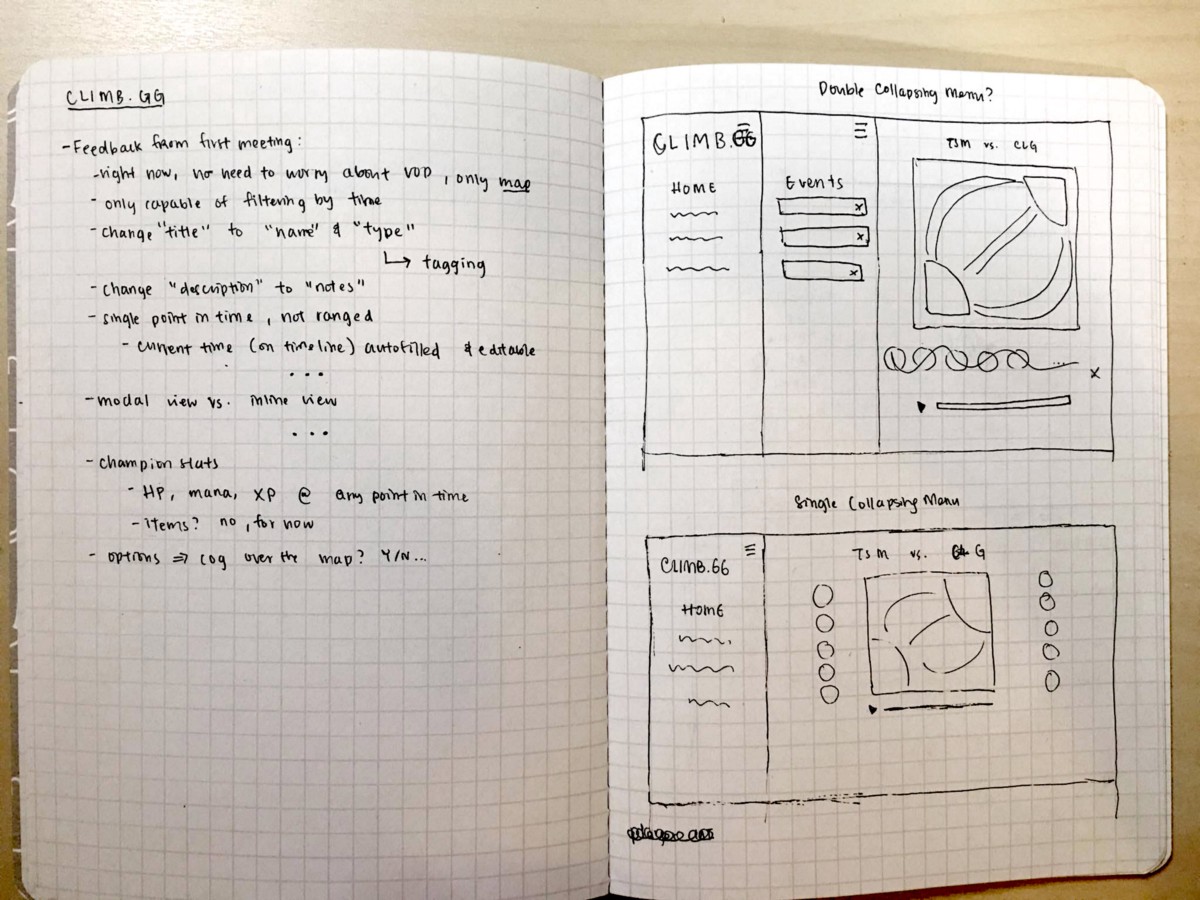 CLIMB.GG
- Feedback from first meeting:
- right now, no need to worry about VOD, only map
- only capable of filtering by time
- change "title" to "name" & "type"
↳ tagging
- change "description" to "notes"
- single point in time, not ranged
- current time (on timeline) autofilled & editable
...
- modal view vs. inline view
...
- champion stats
- HP, mana, XP @ any point in time
- items? no, for now
- options ⇒ log over the map? Y/N...
Double Collapsing Menu?
CLIMB.GG
TSM vs. CLG
HOME
Events
x
x
x
...
x
Single Collapsing Menu
CLIMB.GG
TSM vs. G
HOME